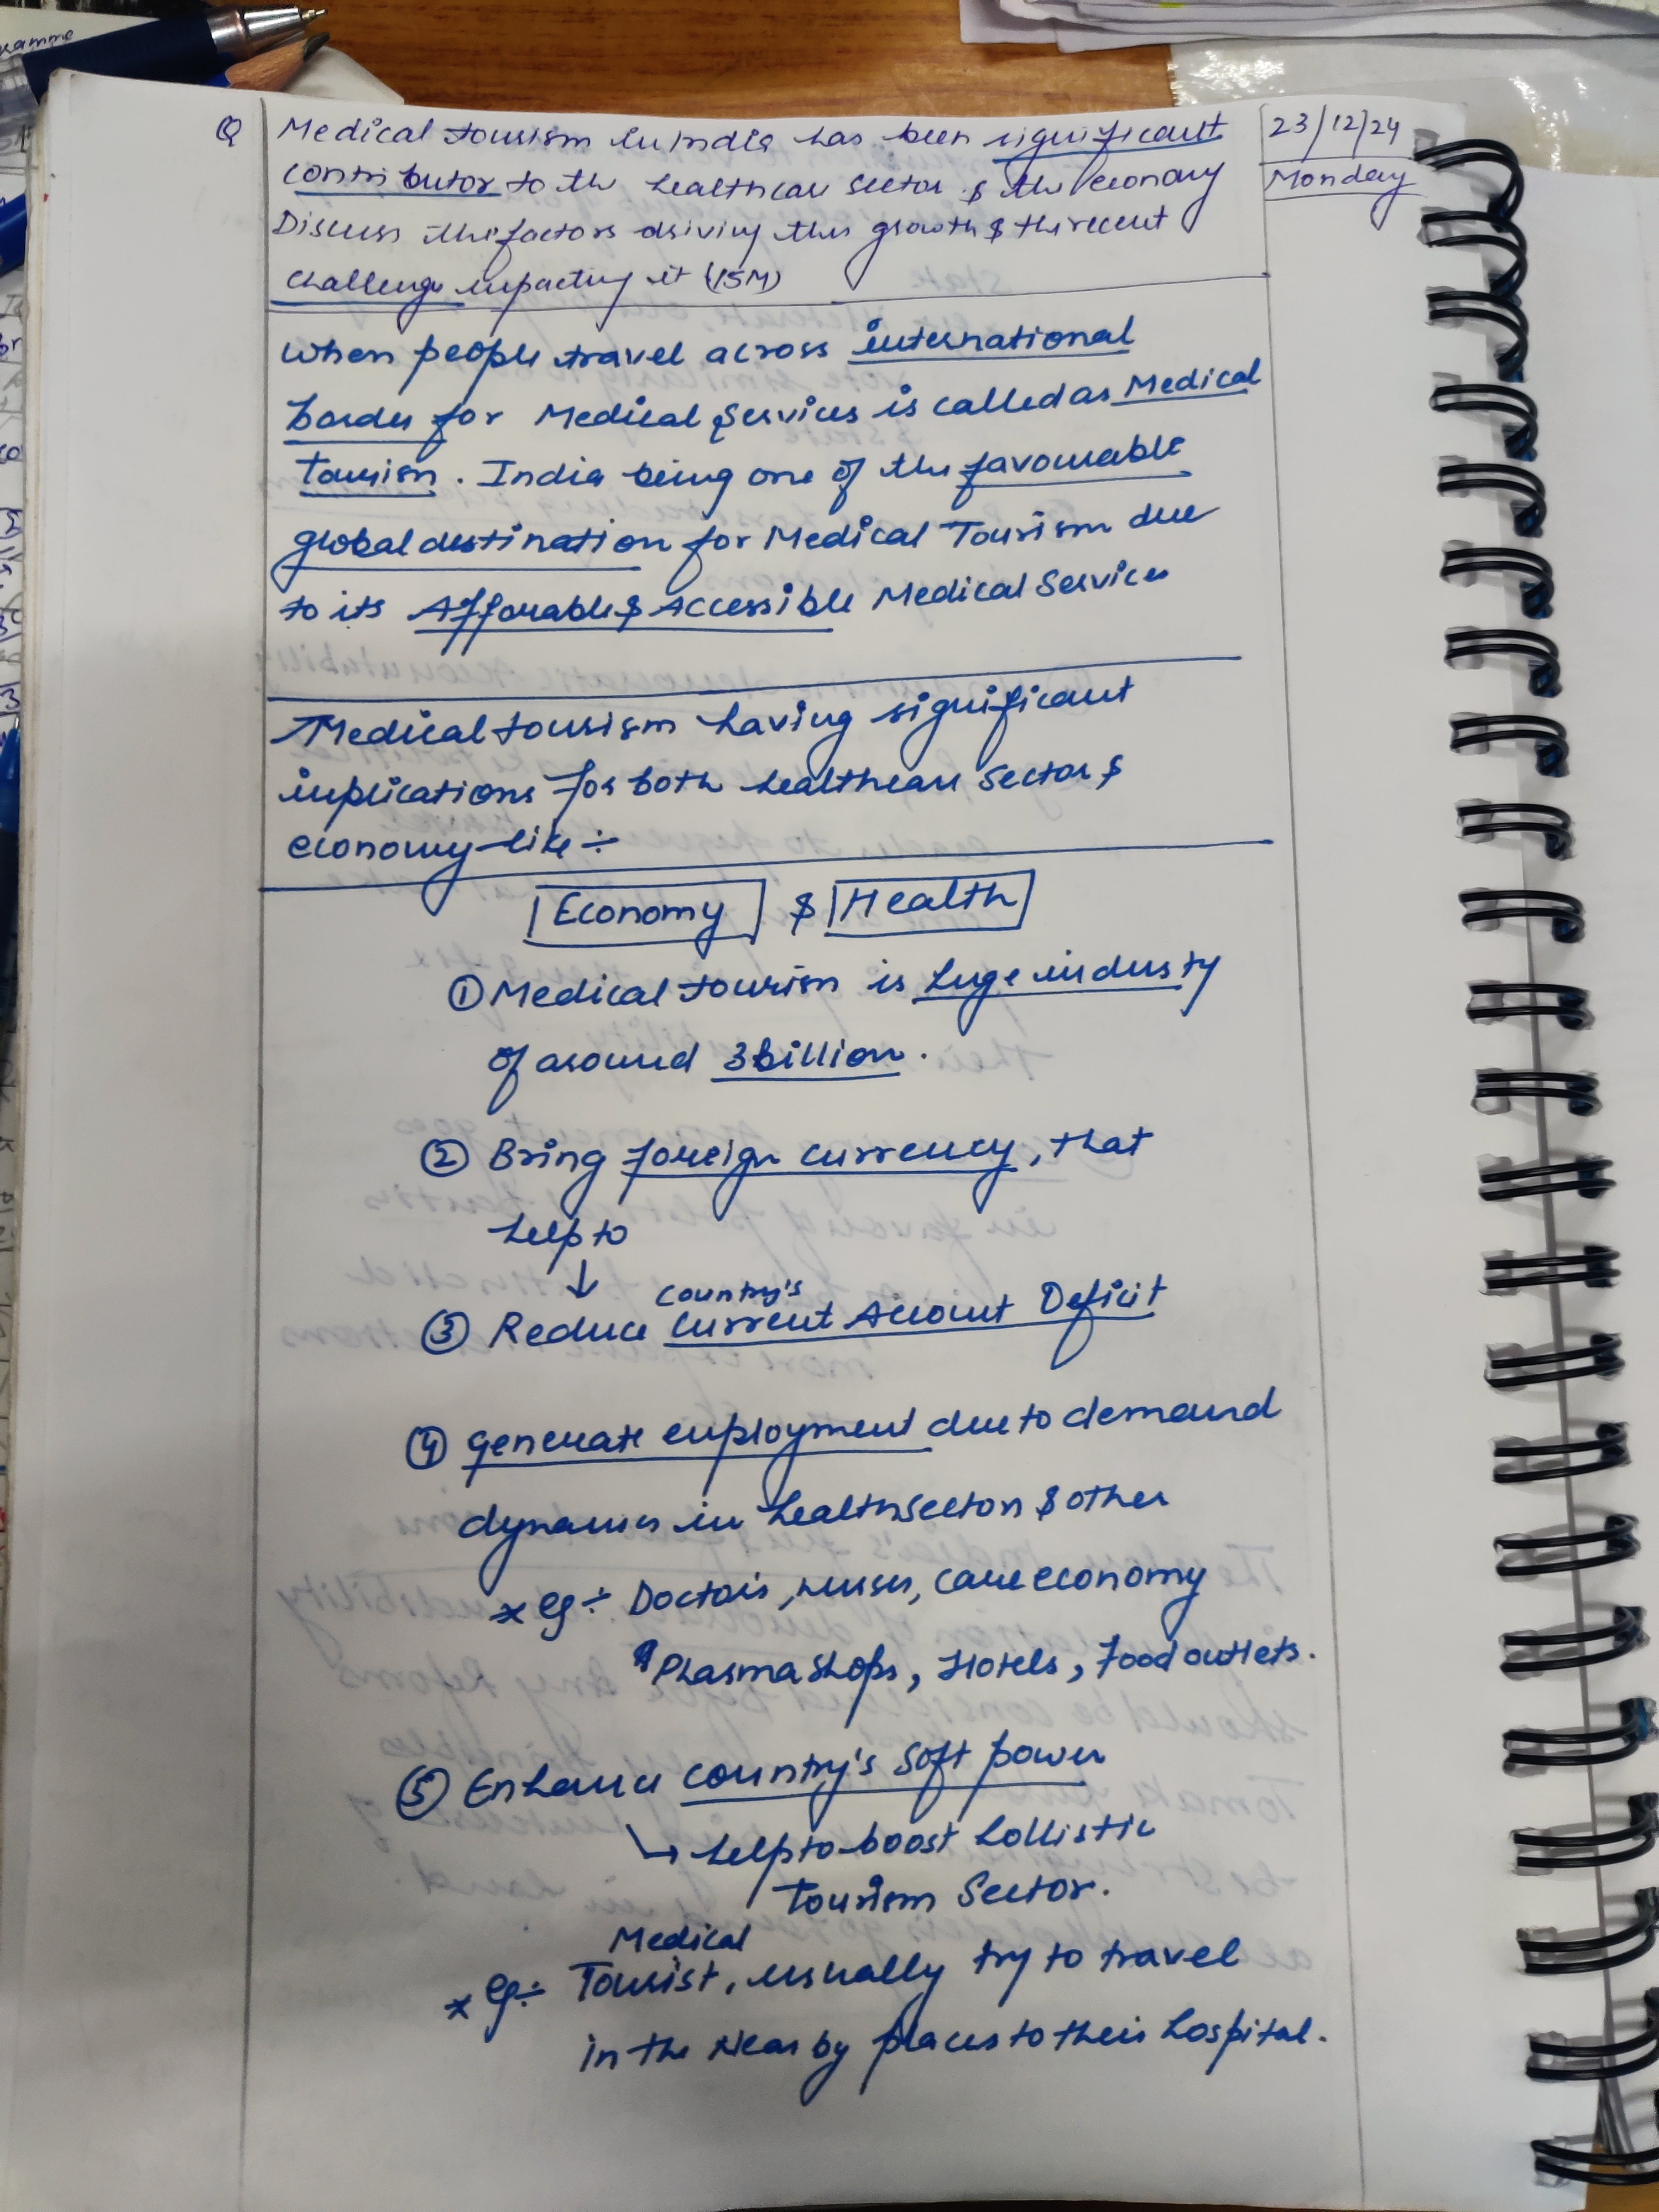 Q Medical tourism in India has been significant
contributor to the healthcare sector & the economy
Discuss the factors driving this growth & the recent
challenge impacting it (15M)
23/12/24
Monday
When people travel across international
border for Medical Services is called as Medical
Tourism. India being one of the favourable
global destination for Medical Tourism due
to its Afforable & Accessible Medical Services
Medical tourism having significant
implications for both healthcare sector &
economy like ÷
Economy & Health
① Medical tourism is huge industy
of around 3 billion.
② Bring foreign currency, that
help to
↓
③ Reduce country's Current Account Deficit
④ generate employment due to demand
dynamics in health sector & other
* eg ÷ Doctors, nurses, care economy
& Phasma shops, Hotels, Food outlets.
⑤ Enhance country's soft power
↳ help to boost hollistic
Tourism Sector.
* eg ÷ Medical Tourist, usually try to travel
in the Near by places to their hospital.